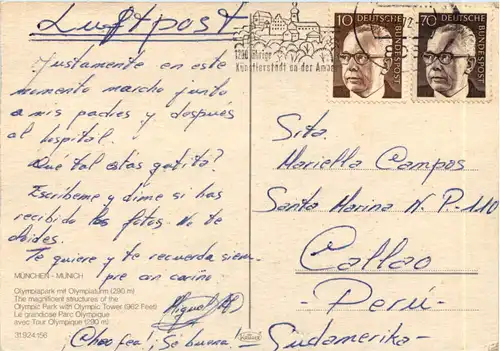 Luftpost
Justamente en este
momento marcho junto
a mis padres y después
al hospital.
Qué tal estás gatita?
Escríbeme y dime si has
recibido las fotos. No te
olvides.
Te quiere y te recuerda siem-
pre con cariño
Miguel
Chao fea! ¡Se buena!
MÜNCHEN - MUNICH
Olympiapark mit Olympiaturm (290 m)
The magnificent structures of the
Olympic Park with Olympic Tower (962 Feet)
Le grandiose Parc Olympique
avec Tour Olympique (290 m)
31.924 t56
1200 jährige
Künstlerstadt an der Amper
10 DEUTSCHE BUNDESPOST
70 DEUTSCHE BUNDESPOST
Srta.
Mariella Campos
Santa Marina N. P-110
Callao
- Perú -
Sudamerika -